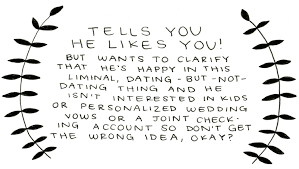 TELLS YOU
HE LIKES YOU!
BUT WANTS TO CLARIFY
THAT HE'S HAPPY IN THIS
LIMINAL, DATING-BUT-NOT-
DATING THING AND HE
ISN'T INTERESTED IN KIDS
OR PERSONALIZED WEDDING
VOWS OR A JOINT CHECK-
ING ACCOUNT SO DON'T GET
THE WRONG IDEA, OKAY?